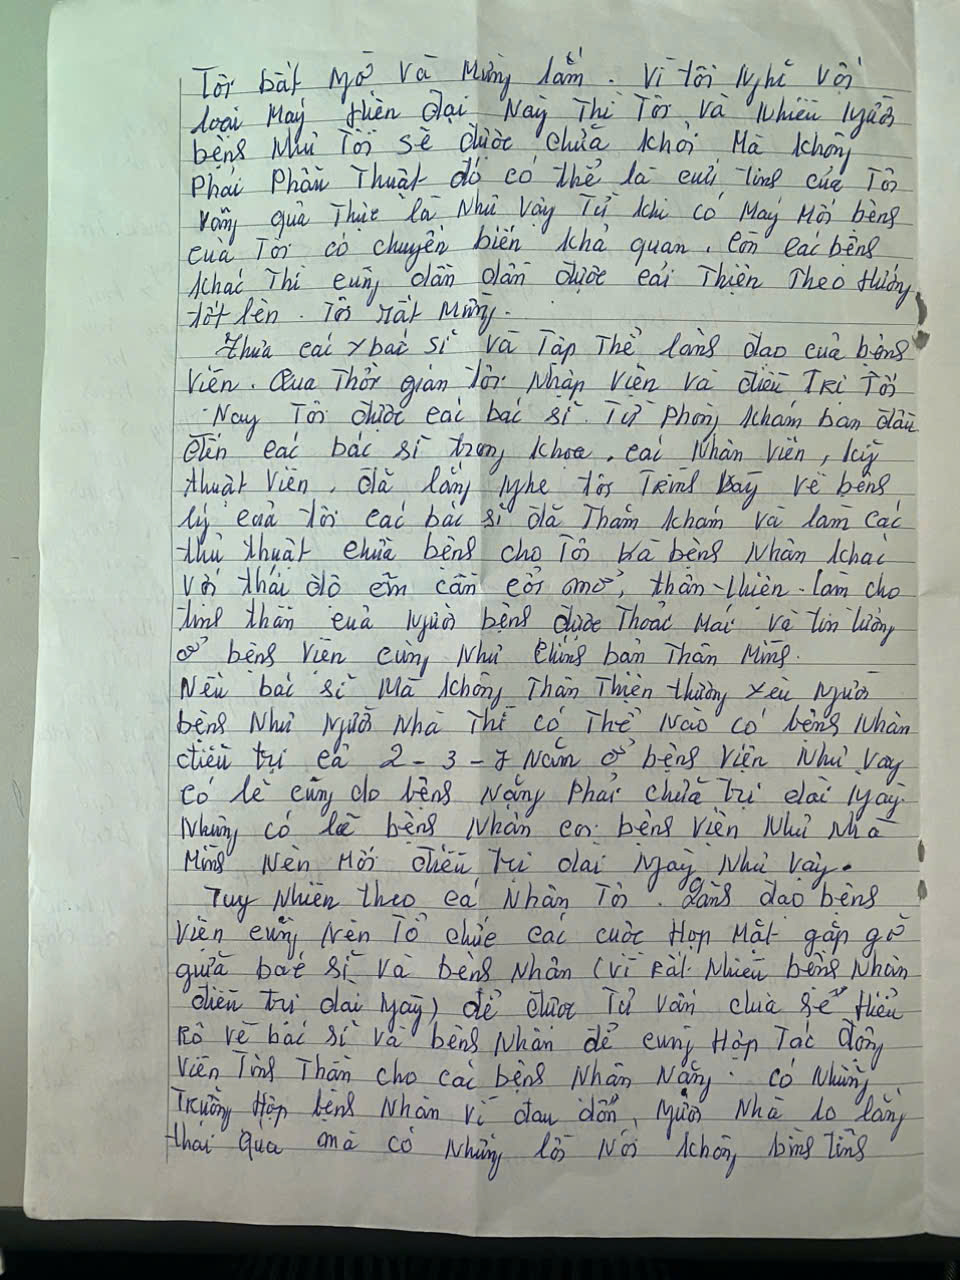 Tôi bất ngờ và mừng lắm. Vì tôi nghĩ với
loại máy hiện đại này thì tôi và nhiều người
bệnh như tôi sẽ được chữa khỏi mà không
phải phẫu thuật đó có thể là cứu tinh của tôi
vâng quả thực là như vậy từ khi có máy mới bệnh
của tôi có chuyển biến khả quan. Còn các bệnh
khác thì cũng dần dần được cải thiện theo hướng
tốt lên. Tôi rất mừng.
Thưa các y bác sĩ và tập thể lãnh đạo của bệnh
viện. Qua thời gian tôi nhập viện và điều trị tôi
Nay tôi được các bác sĩ từ phòng khám ban đầu
đến các bác sĩ trong khoa, các nhân viên, kỹ
thuật viên, đã lắng nghe tôi trình bày về bệnh
lý của tôi các bác sĩ đã thăm khám và làm các
thủ thuật chữa bệnh cho tôi và bệnh nhân khác
với thái độ ân cần cởi mở, thân thiện. làm cho
tinh thần của người bệnh được thoải mái và tin tưởng
ở bệnh viện cũng như chính bản thân mình.
Nếu bác sĩ mà không thân thiện thương yêu người
bệnh như người nhà thì có thể nào có bệnh nhân
điều trị cả 2 - 3 - 7 năm ở bệnh viện như vậy
có lẽ cũng do bệnh nặng phải chữa trị dài ngày.
Nhưng có lẽ bệnh nhân coi bệnh viện như nhà
mình nên mới điều trị dài ngày như vậy.
Tuy nhiên theo cá nhân tôi. Lãnh đạo bệnh
viện cũng nên tổ chức các cuộc họp mặt gặp gỡ
giữa bác sĩ và bệnh nhân (vì rất nhiều bệnh nhân
điều trị dài ngày) để được tư vấn chia sẻ hiểu
rõ về bác sĩ và bệnh nhân để cùng hợp tác động
viên tinh thần cho các bệnh nhân nặng. có những
trường hợp bệnh nhân vì đau đớn, người nhà lo lắng
thái quá mà có những lời nói không bình tĩnh